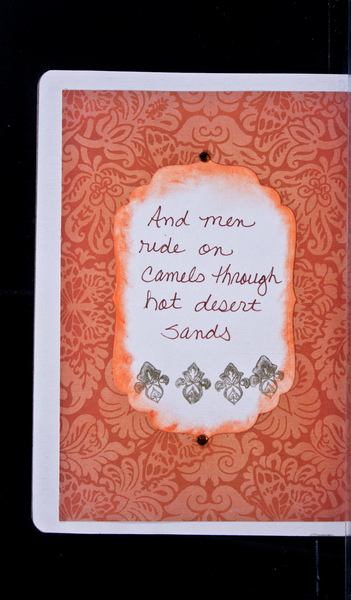 And men
ride on
Camels through
hot desert
Sands